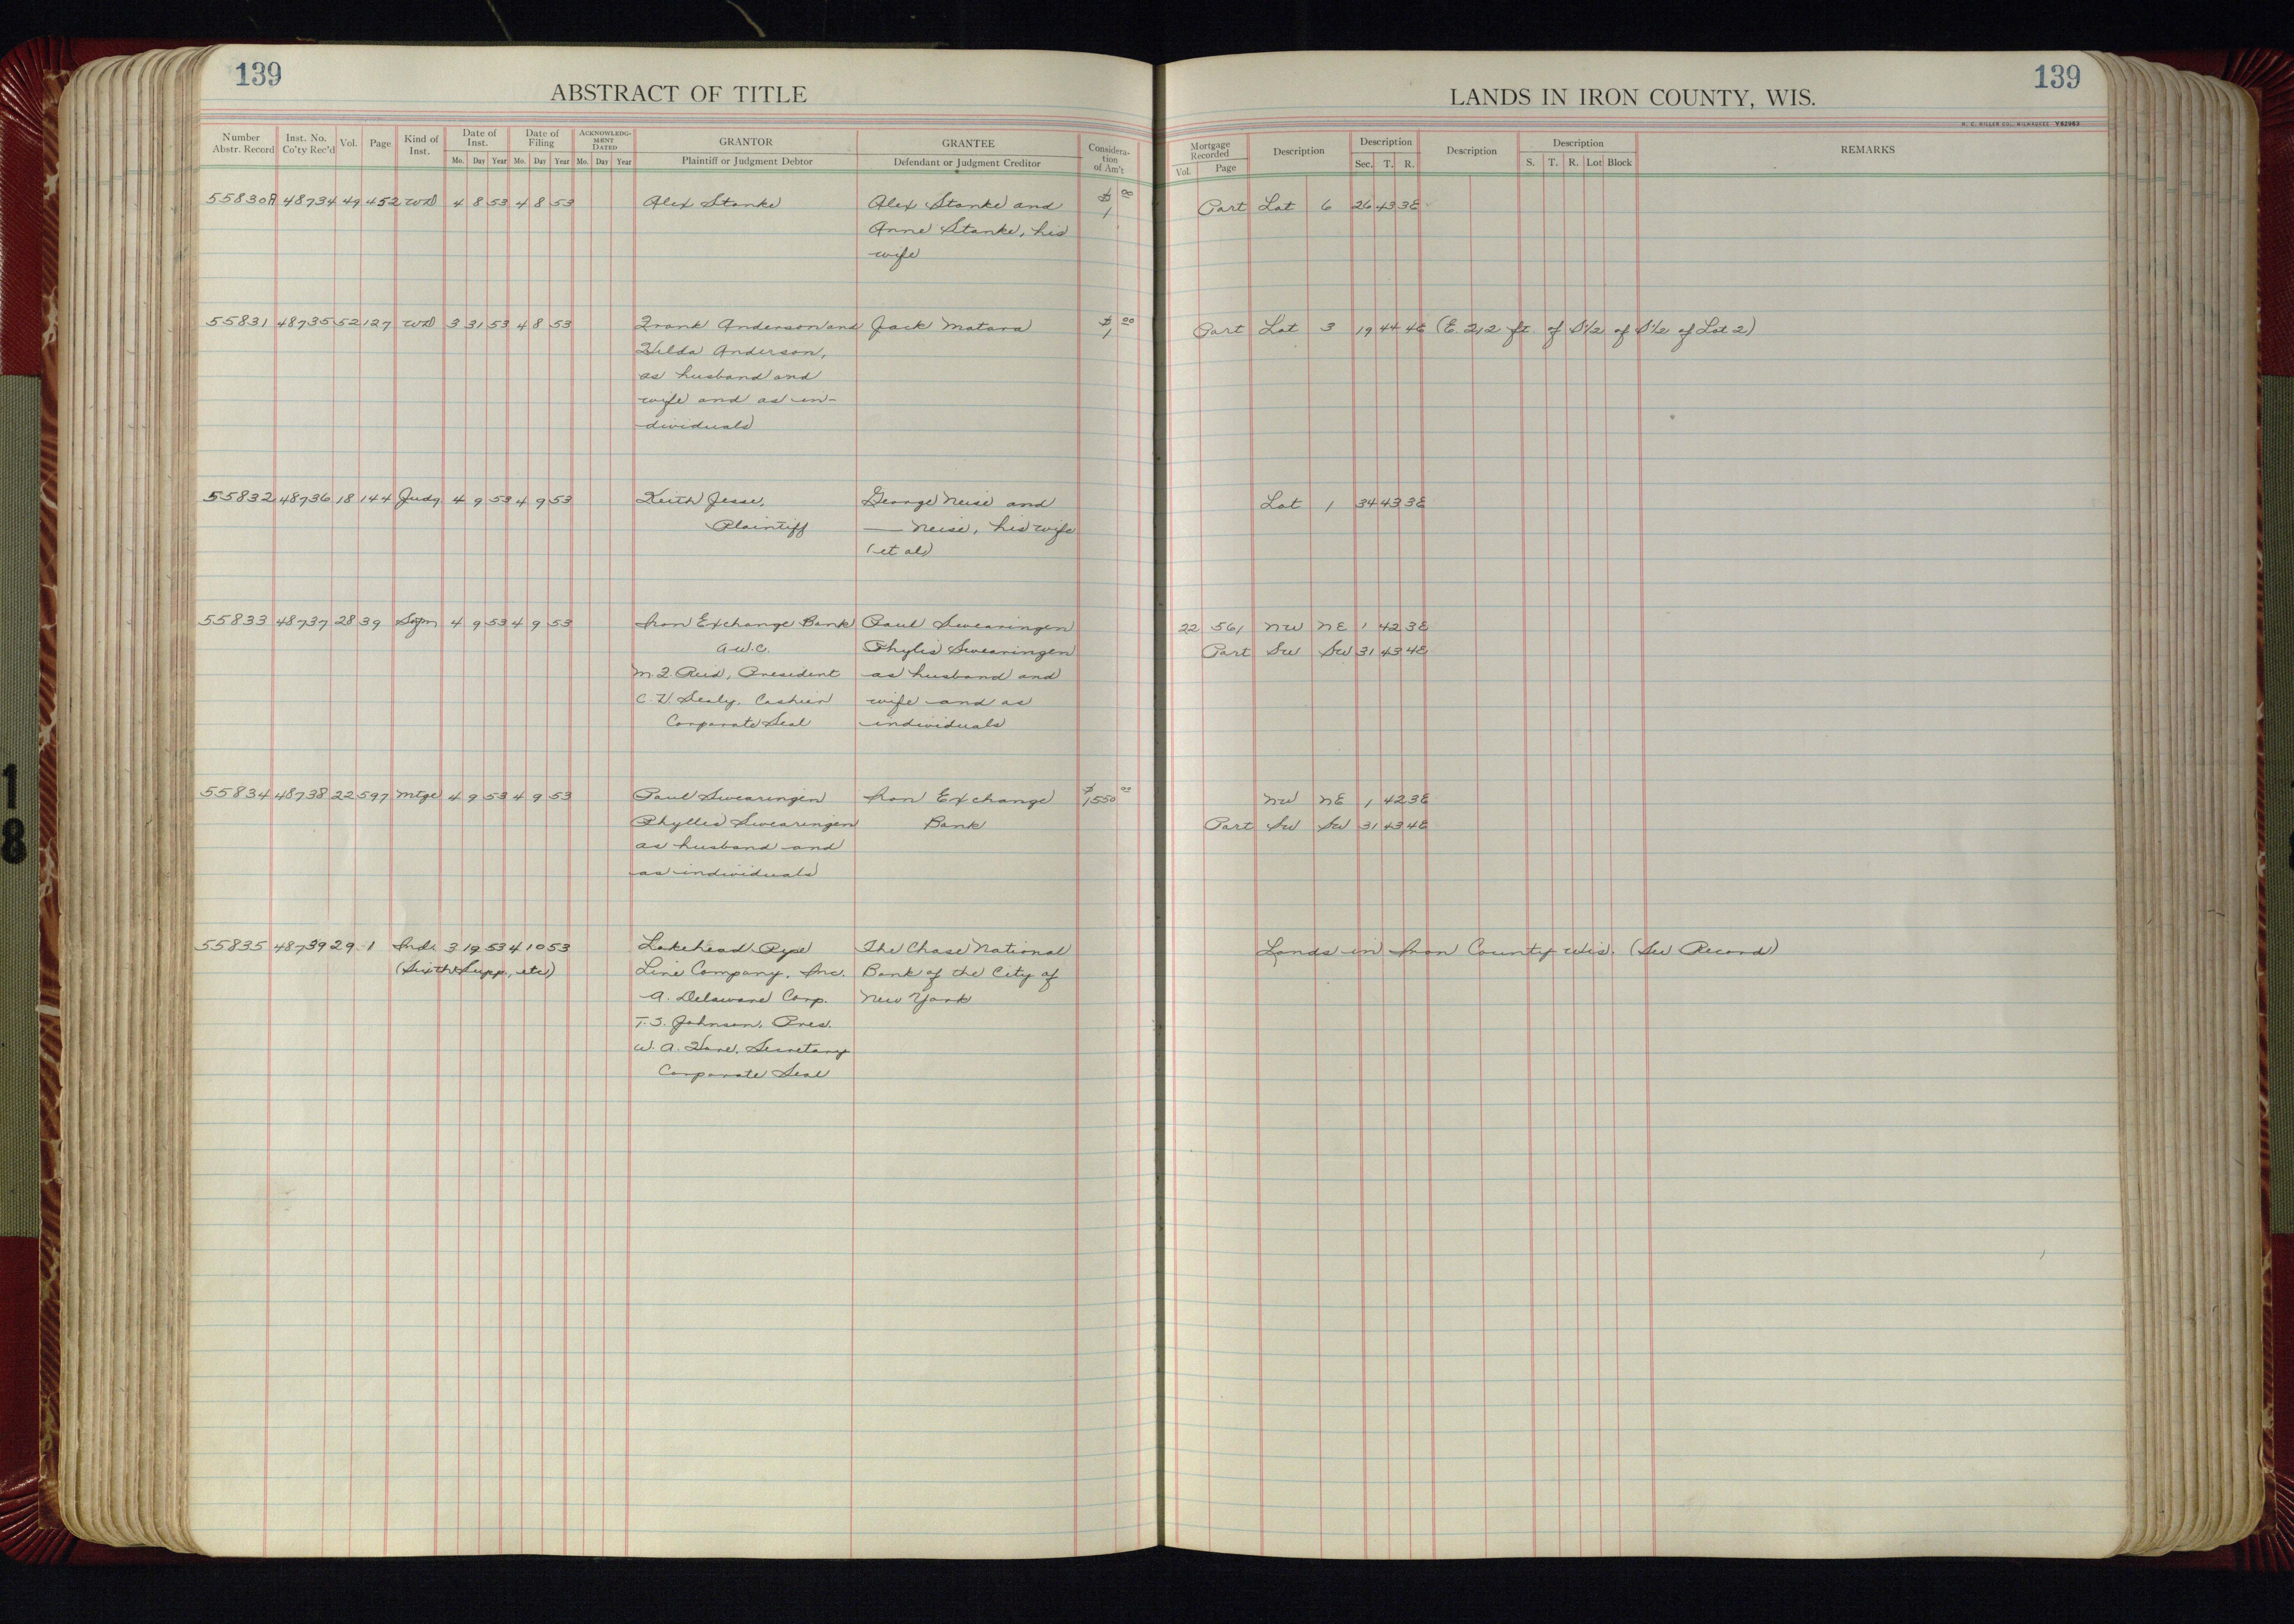 139
ABSTRACT OF TITLE
Number Abstr. Record Inst. No. Co'ty Rec'd Vol. Page Kind of Inst. Date of Inst. Mo. Day Year Date of Filing Mo. Day Year ACKNOWLEDGMENT DATED Mo. Day Year GRANTOR Plaintiff or Judgment Debtor GRANTEE Defendant or Judgment Creditor Consideration of Am't
55830A 48734 49 452 WD 4 8 53 4 8 53 Alex Stanke Alex Stanke and $1 00
Anne Stanke, his
wife
55831 48735 52 127 WD 3 31 53 4 8 53 Frank Anderson and Jack Matara $1 00
Hilda Anderson,
as husband and
wife and as in-
dividuals
55832 48736 18 144 Judg 4 9 53 4 9 53 Keith Jesse, George Neise and
Plaintiff — Neise, his wife
(et al)
55833 48737 28 39 4 9 53 4 9 53 Iron Exchange Bank Paul Swearingen
a.w.c. Phylis Swearingen
President as husband and
Cashier wife and as
Corporate Seal individuals
55834 48738 22 597 Mtge 4 9 53 4 9 53 Paul Swearingen Iron Exchange $1550 00
Phyllis Swearingen Bank
as husband and
as individuals
55835 48739 29 1 Ind. 3 19 53 4 10 53 Lakehead Pipe The Chase National
(Sixth Supp., etc) Line Company, Inc. Bank of the City of
A. Delaware Corp. New York
T.S. Johnson, Pres.
W. A. Secretary
Corporate Seal
139
LANDS IN IRON COUNTY, WIS.
H. C. MILLER CO., MILWAUKEE Y62963
Mortgage Recorded Vol. Page Description Description Sec. T. R. Description Description S. T. R. Lot Block REMARKS
Part Lot 6 26 43 3E
Part Lot 3 19 44 4E (E. 212 ft. of S½ of S½ of Lot 2)
Lot 1 34 43 3E
22 561 NW NE 1 42 3E
Part SW SW 31 43 4E
NW NE 1 42 3E
Part SW SW 31 43 4E
Lands in Iron County Wis. (See Record)
18